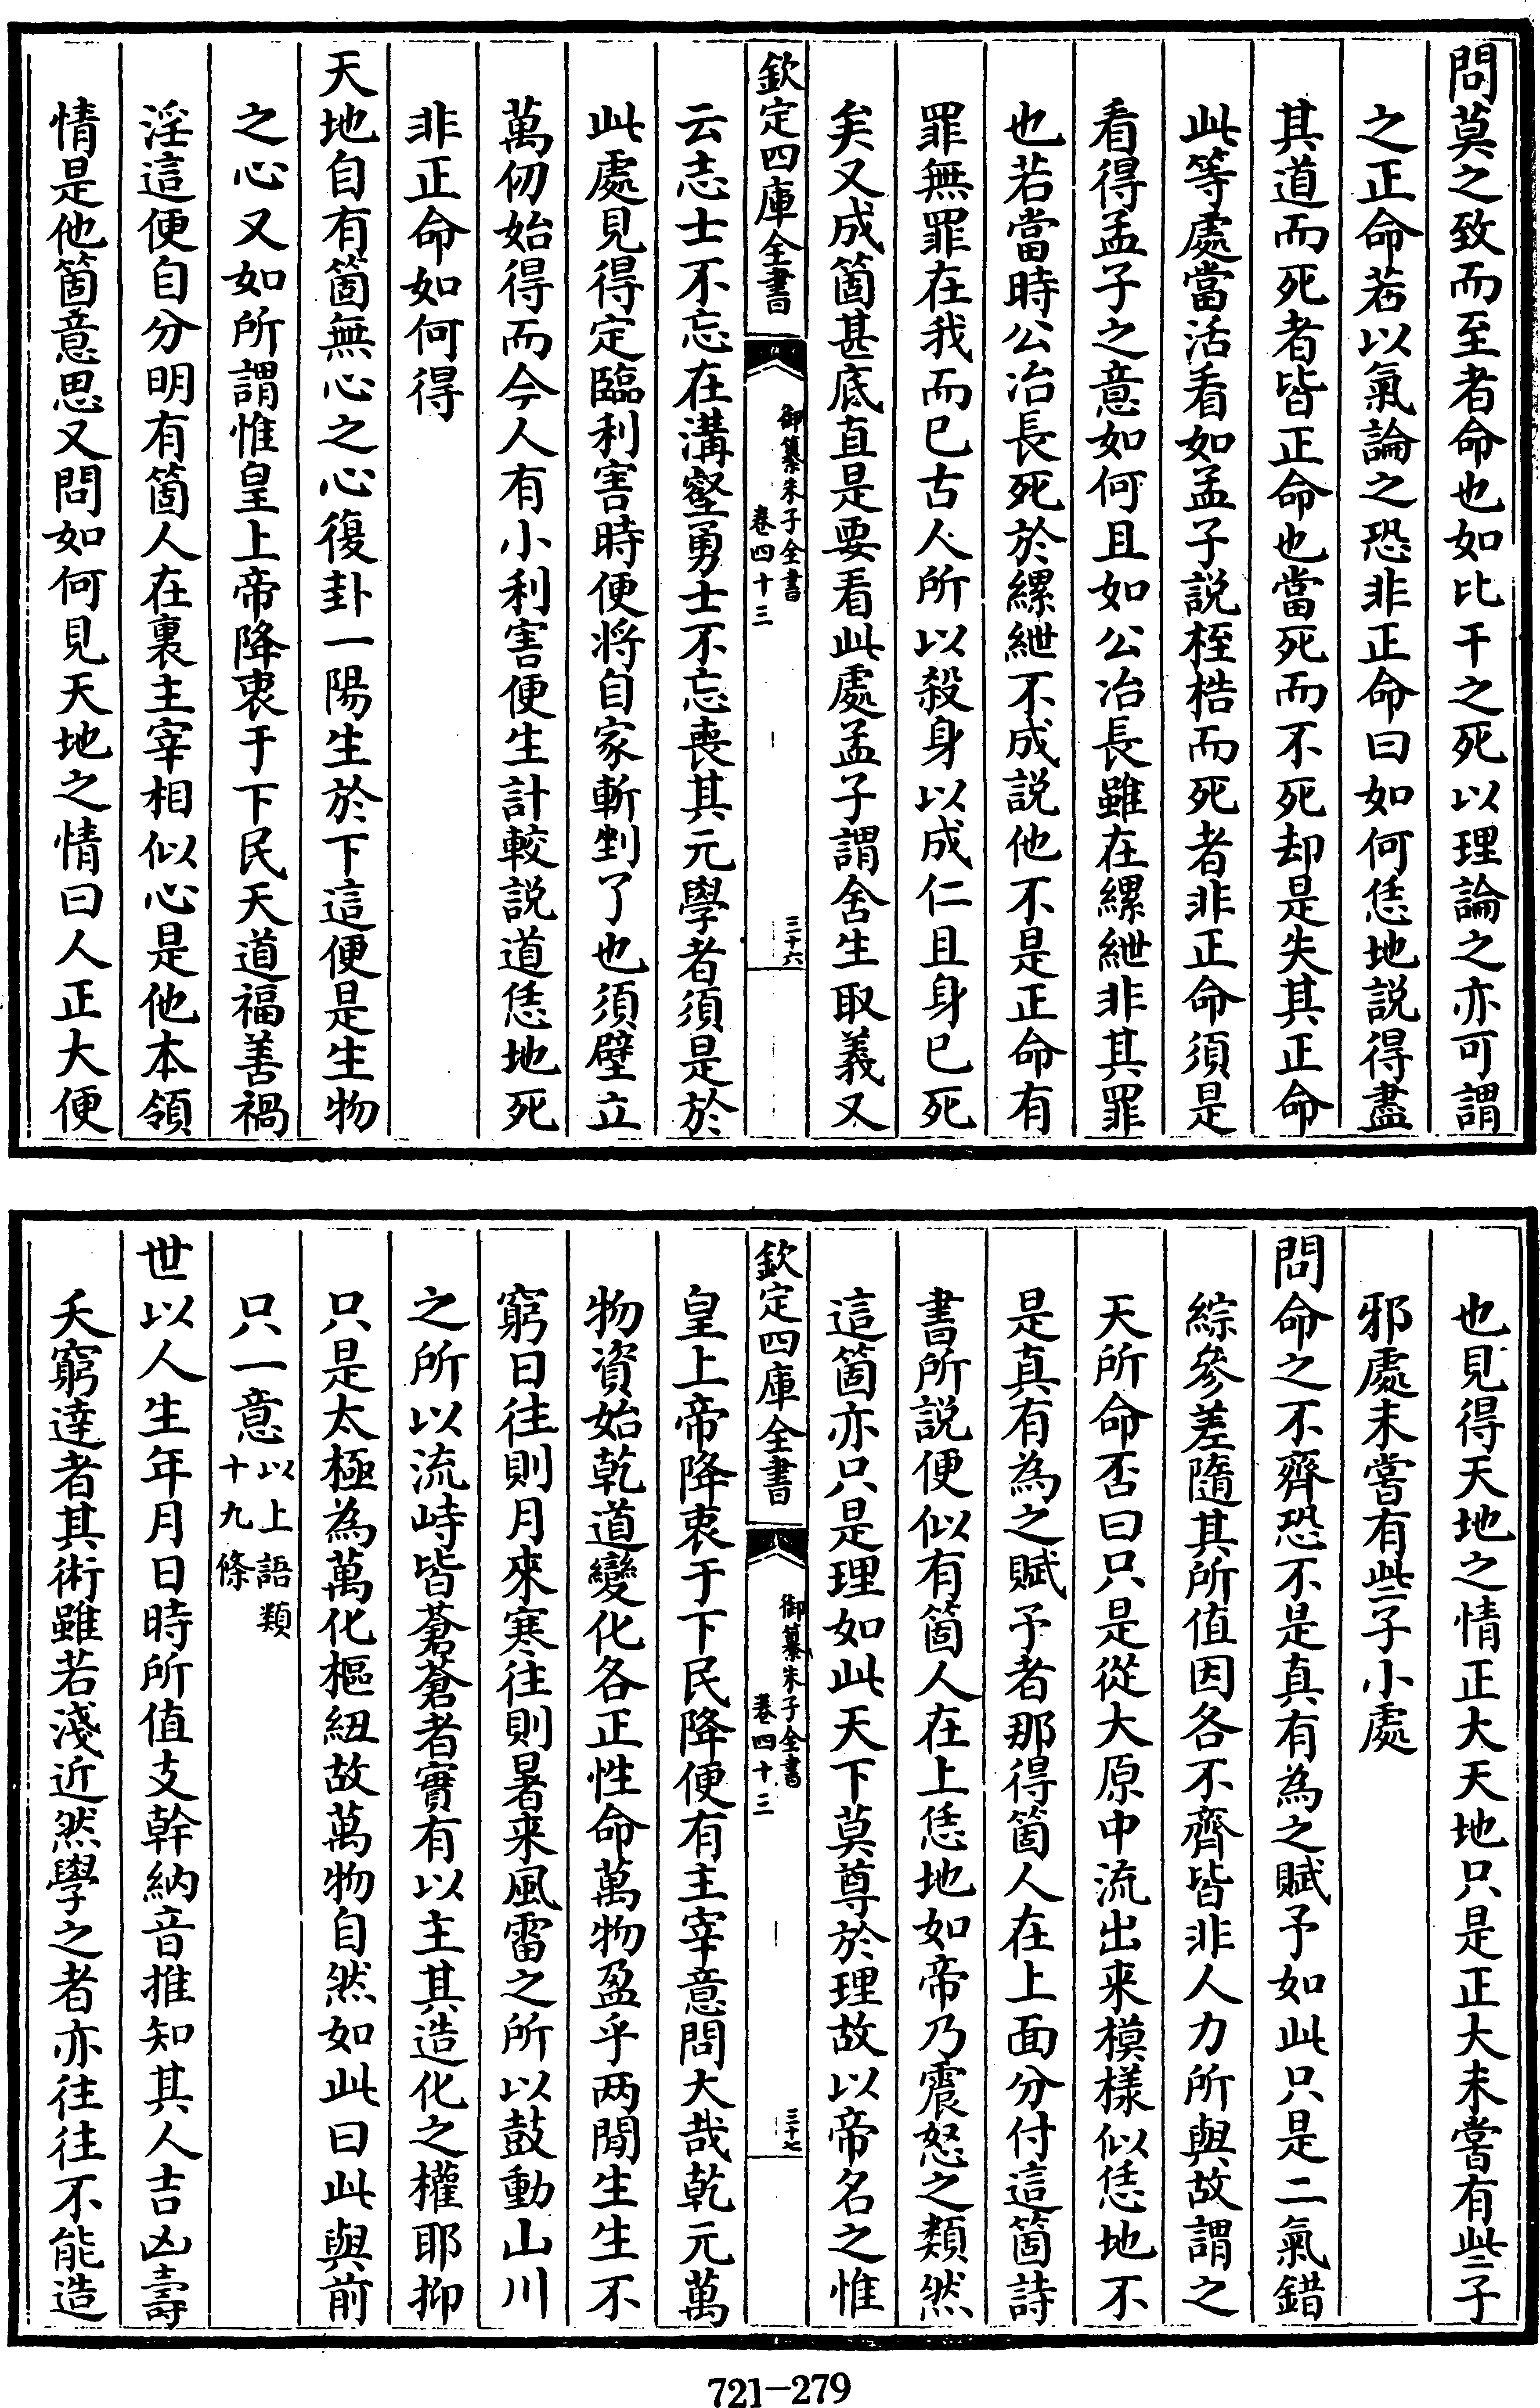 問莫之致而至者命也如比干之死以理論之亦可謂
之正命若以氣論之恐非正命曰如何恁地說得盡
其道而死者皆正命也當死而不死却是失其正命
此等處當活看如孟子說桎梏而死者非正命須是
看得孟子之意如何且如公冶長雖在縲絏非其罪
也若當時公冶長死於縲絏不成說他不是正命有
罪無罪在我而已古人所以殺身以成仁且身已死
矣又成箇甚底直是要看此處孟子謂舍生取義又
欽定四庫全書
御纂朱子全書
卷四十三
三十六
云志士不忘在溝壑勇士不忘喪其元學者須是於
此處見得定臨利害時便將自家斬剉了也須壁立
萬仞始得而今人有小利害便生計較說道恁地死
非正命如何得
天地自有箇無心之心復卦一陽生於下這便是生物
之心又如所謂惟皇上帝降衷于下民天道福善禍
淫這便自分明有箇人在裏主宰相似心是他本領
情是他箇意思又問如何見天地之情曰人正大便
也見得天地之情正大天地只是正大未嘗有些子
邪處未嘗有些子小處
問命之不齊恐不是真有為之賦予如此只是二氣錯
綜參差隨其所值因各不齊皆非人力所與故謂之
天所命否曰只是從大原中流出来模樣似恁地不
是真有為之賦予者那得箇人在上面分付這箇詩
書所說便似有箇人在上恁地如帝乃震怒之類然
這箇亦只是理如此天下莫尊於理故以帝名之惟
欽定四庫全書
御纂朱子全書
卷四十三
三十七
皇上帝降衷于下民降便有主宰意問大哉乾元萬
物資始乾道變化各正性命萬物盈乎兩閒生生不
窮日往則月來寒往則暑来風雷之所以鼓動山川
之所以流峙皆蒼蒼者實有以主其造化之權耶抑
只是太極為萬化樞紐故萬物自然如此曰此與前
只一意以上語類十九條
世以人生年月日時所值支幹納音推知其人吉凶壽
夭窮達者其術雖若淺近然學之者亦往往不能造
721-279